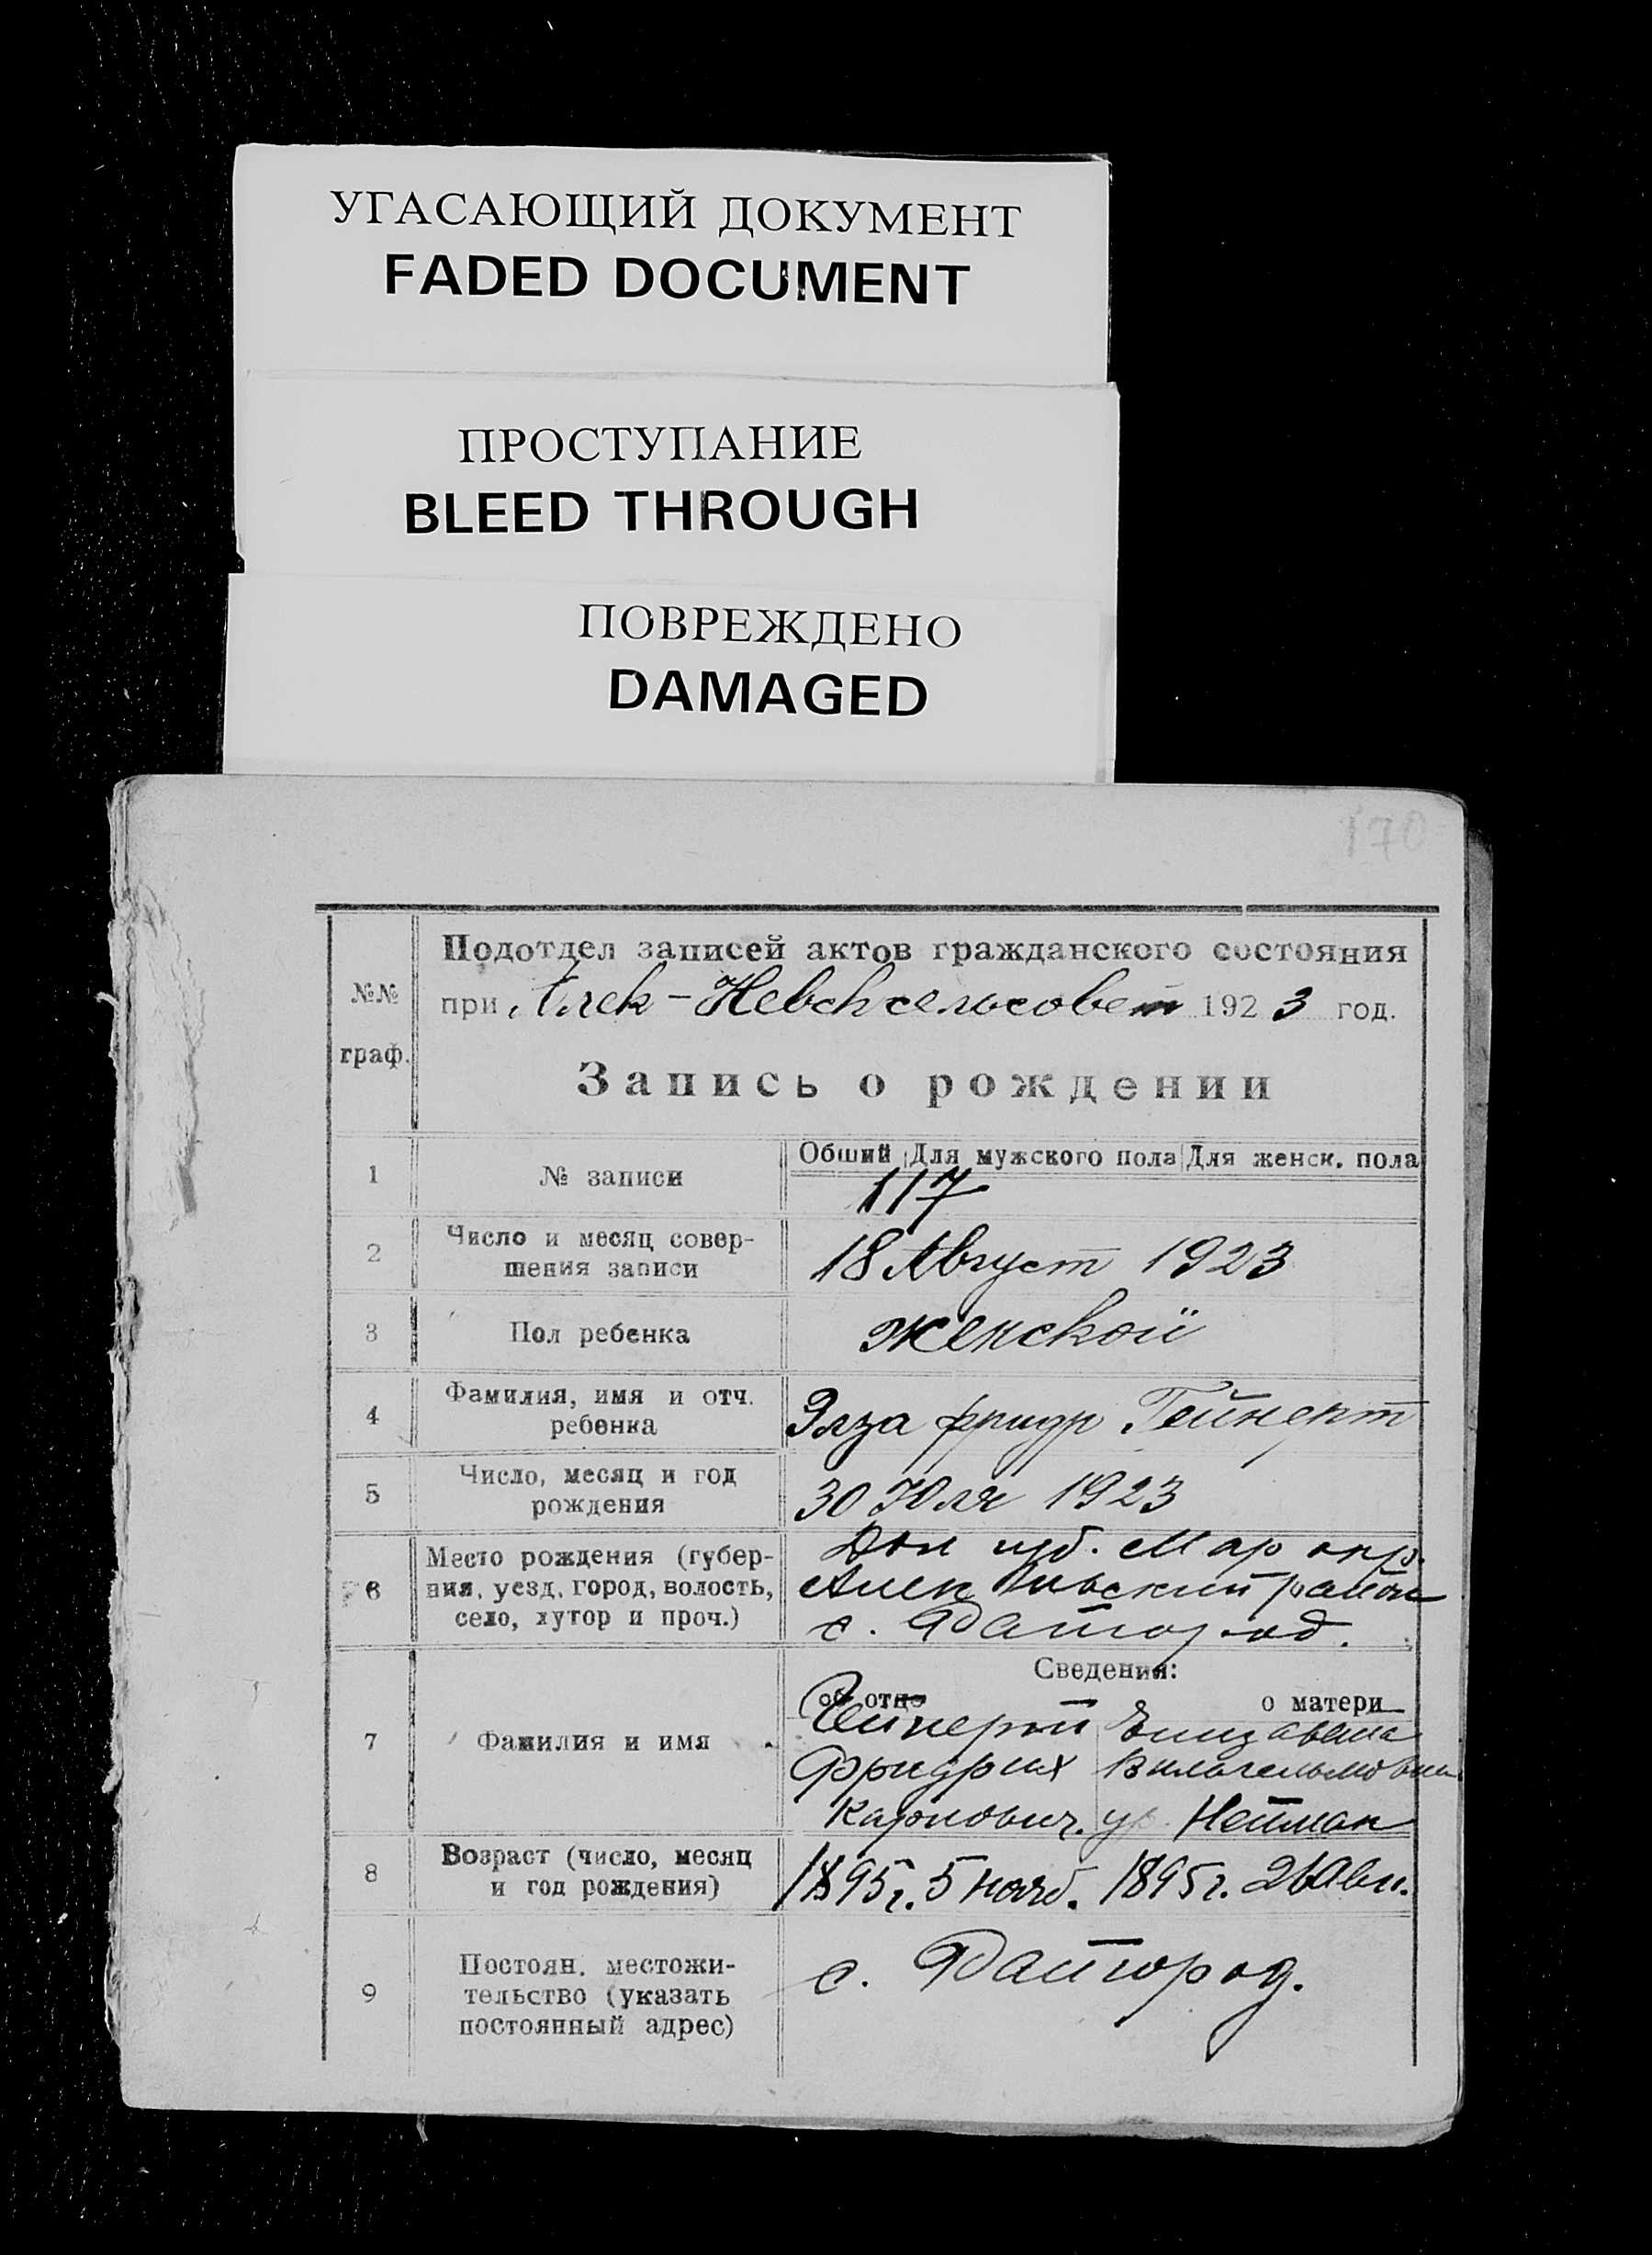 УГАСАЮЩИЙ ДОКУМЕНТ
FADED DOCUMENT
ПРОСТУПАНИЕ
BLEED THROUGH
ПОВРЕЖДЕНО
DAMAGED
170
№№ граф.
Подотдел записей актов гражданского состояния
при Алек-Невск сельсовет 1923 год.
Запись о рождении
Общий Для мужского пола Для женск. пола
1 № записи 117
2 Число и месяц совер-
шения записи 18 Август 1923
3 Пол ребенка женской
4 Фамилия, имя и отч.
ребенка Элза фридр Гейнерт
5 Число, месяц и год
рождения 30 Юля 1923
6 Место рождения (губер-
ния, уезд, город, волость,
село, хутор и проч.)
Дон губ. Мар окр.
район
с.
Сведения:
об отце о матери
7 Фамилия и имя
Гейнерт Елизавета
Фридрих Вильгельмовна
Карлович. ур. Нейман
8 Возраст (число, месяц
и год рождения) 1895г. 5 нояб. 1895г.
9 Постоян. местожи-
тельство (указать
постоянный адрес)
с.